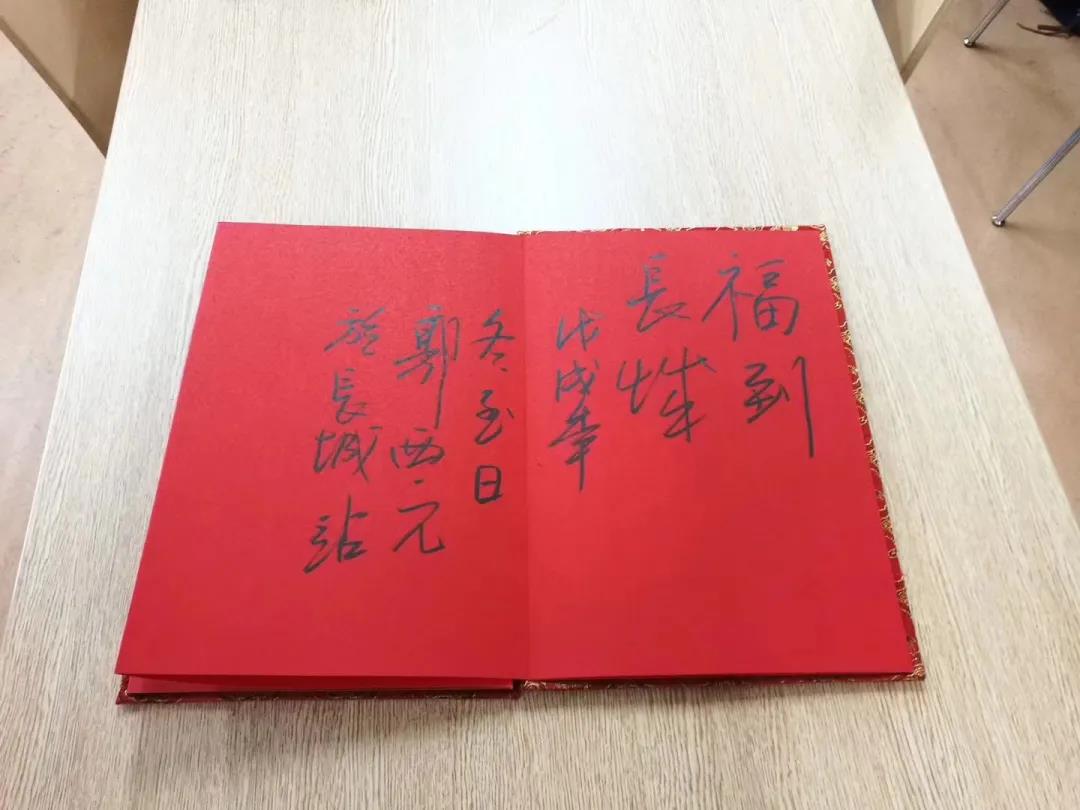 福到
長城
戊戌年
冬至日
郭西元
於長城站